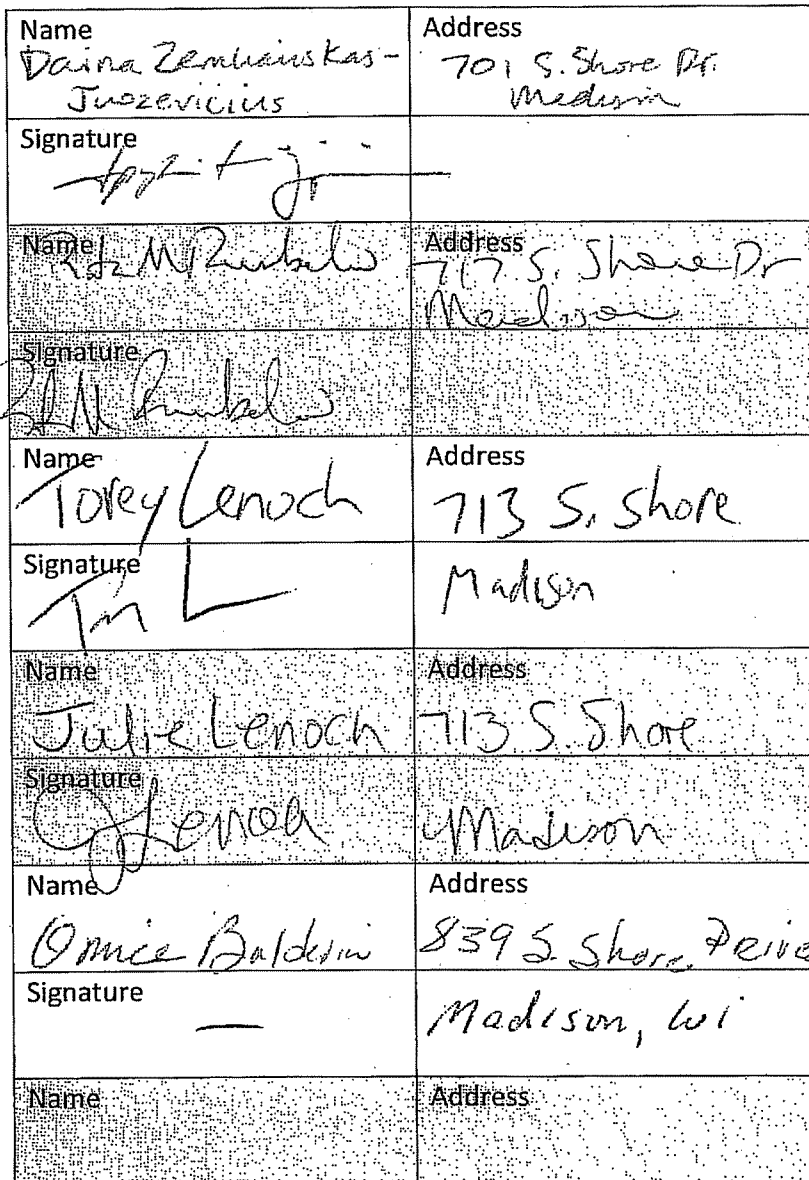 Name
Daina Zemliauskas-
Juozevicius
Address
701 S. Shore Dr.
Madison
Signature
Name
M
Address
717 S. Shore Dr
Madison
Signature
Name
Torey Lenoch
Address
713 S. Shore
Signature
Madison
Name
Julie Lenoch
Address
713 S. Shore
Signature
J Lenoch
Madison
Name
Baldwin
Address
839 S. Shore Drive
Signature
—
Madison, Wi
Name
Address